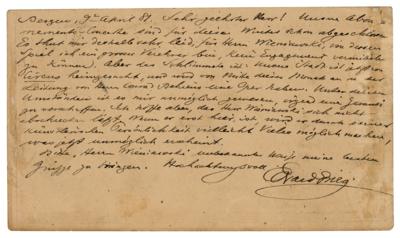 Bergen, 9. April 81. Sehr geehrter Herr! Unsere Abon-
nements-Concerte sind für diesen Winter schon abgeschlossen.
Es thut mir deshalb sehr leid, für Herrn Wieniawski, von dessen
Spiel ich ein grosser Verehrer bin, kein Engagement vermitteln
zu können. Aber das Schlimmste ist: Unsere Stadt ist jetzt von
heimgesucht, und wird von Mitte dieses Monats an unter
Leitung von Herrn eine Oper haben. Unter diesen
Umständen ist es mir unmöglich gewesen, irgend eine
zu verschaffen. Ich hoffe aber, das Herr Wieniawski sich nicht
abschrecken lässt. Wenn er erst hier ist, wird es durch seine
künstlerische Persönlichkeit vielleicht Vieles möglich machen,
was jetzt unmöglich erscheint.
Bitte, Herrn Wieniawski unbekannter Weise meine besten
Grüsse zu bringen. Hochachtungsvoll
Edvard Grieg